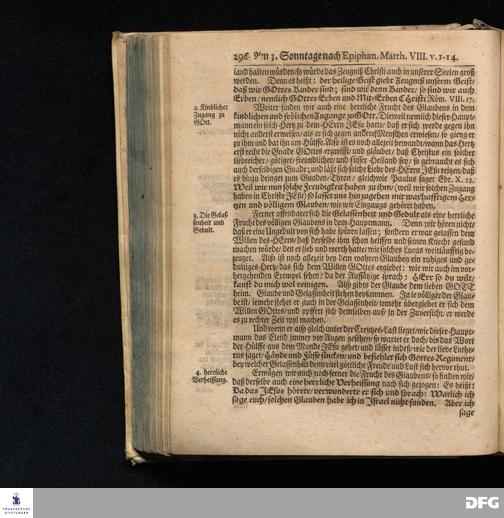 296 Am 3. Sonntage nach Epiphan. Matth. VIII. v. 1-14.
sand halten würden/ so würde das Zeugniß Christi auch in unserer Seelen groß
werden. Denn es heist: der heilige Geist giebt Zeugniß unserm Geist/
daß wir GOttes Kinder sind; sind wir denn Kinder/ so sind wir auch
Erben/ nemlich GOttes Erben und Mit-Erben Christi Röm. VIII. 17.
2. Kindlicher
Zugang zu
GOtt.
Weiter finden wir auch eine herrliche Frucht des Glaubens in dem
kindlichen und frölichen Zugange zu GOtt. Dieweil nemlich dieser Haupt-
mann ein solch Hertz zu dem HErrn JEsu hatte/ daß er sich werde gegen ihn
nicht anderst erweisen/ als er sich gegen andere Menschen erwiesen/ so gieng er
zu ihm und bat ihn um Hülffe. Also ist noch allezeit bewandt/ wann das Hertz
erst recht die Gnade GOttes ergreifft/ und gläubet/ daß Christus ein solcher
liebreicher/ gütiger/ freundlicher/ und süsser Heiland sey/ so gebraucht es sich
auch derselbigen Gnade/ und läßt sich solche Liebe des HErrn JEsu reitzen/ daß
es hinzu dringet zum Gnaden-Thron/ gleichwie Paulus saget Ebr. X. 22.
Weil wir nun solche Freudigkeit haben zu ihm/ (weil wir solchen Zugang
haben in Christo JEsu) so lasset uns hinzugehen mit warhafftigem Her-
tzen und völligem Glauben/ wie wir Eingangs gehöret haben.
3. Die Gelas-
senheit und
Gedult.
Ferner offenbaret sich die Gelassenheit und Gedult als eine herrliche
Frucht des völligen Glaubens in dem Hauptmann. Denn wir hören nicht/
daß er eine Ungedult von sich habe spüren lassen; sondern er war gelassen dem
Willen des HErrn/ daß derselbe ihm schon helffen und seinen Knecht gesund
machen würde/ den er lieb und werth hatte/ wie solches Lucas weitläufftig be-
zeuget. Also ist noch allezeit bey dem wahren Glauben ein ruhiges und ge-
dultiges Hertz/ das sich dem Willen GOttes ergiebet: wie wir auch im vor-
hergehenden Exempel sehen/ da der Aussätzige sprach: HErr so du wilt/
kanst du mich wol reinigen. Also gibts der Glaube dem lieben GOTT
heim. Glaube und Gelassenheit stehen beysammen. Ja ie völliger der Glau-
be ist/ iemehr stehet er auch in der Gelassenheit/ iemehr übergiebet er sich dem
Willen GOttes/ und opffert sich demselben auf/ in der Zuversicht/ er werde
es zu rechter Zeit wol machen.
Und wenn er also gleich unter der Creutzes-Last lieget/ wie dieser Haupt-
mann das Elend immer vor Augen gesehen/ so wartet er doch/ bis das Wort
der Hülffe aus dem Munde JEsu gehet/ und lässet indeß/ wie der liebe Luthe-
rus saget/ Hände und Füsse sincken/ und befiehlet sich Gottes Regiment/
bey welcher Gelassenheit denn viel göttliche Freude und Lust sich hervor thut.
4. herrliche
Verheissung.
Erwägen wir auch noch ferner die Frucht des Glaubens/ so finden wir/
daß derselbe auch eine herrliche Verheissung nach sich gezogen: Es heißt:
Da das JEsus hörete/ verwunderte er sich und sprach: Warlich ich
sage euch/ solchen Glauben habe ich in Israel nicht funden. Aber ich
sage
FRANCKESCHE
STIFTUNGEN
DFG